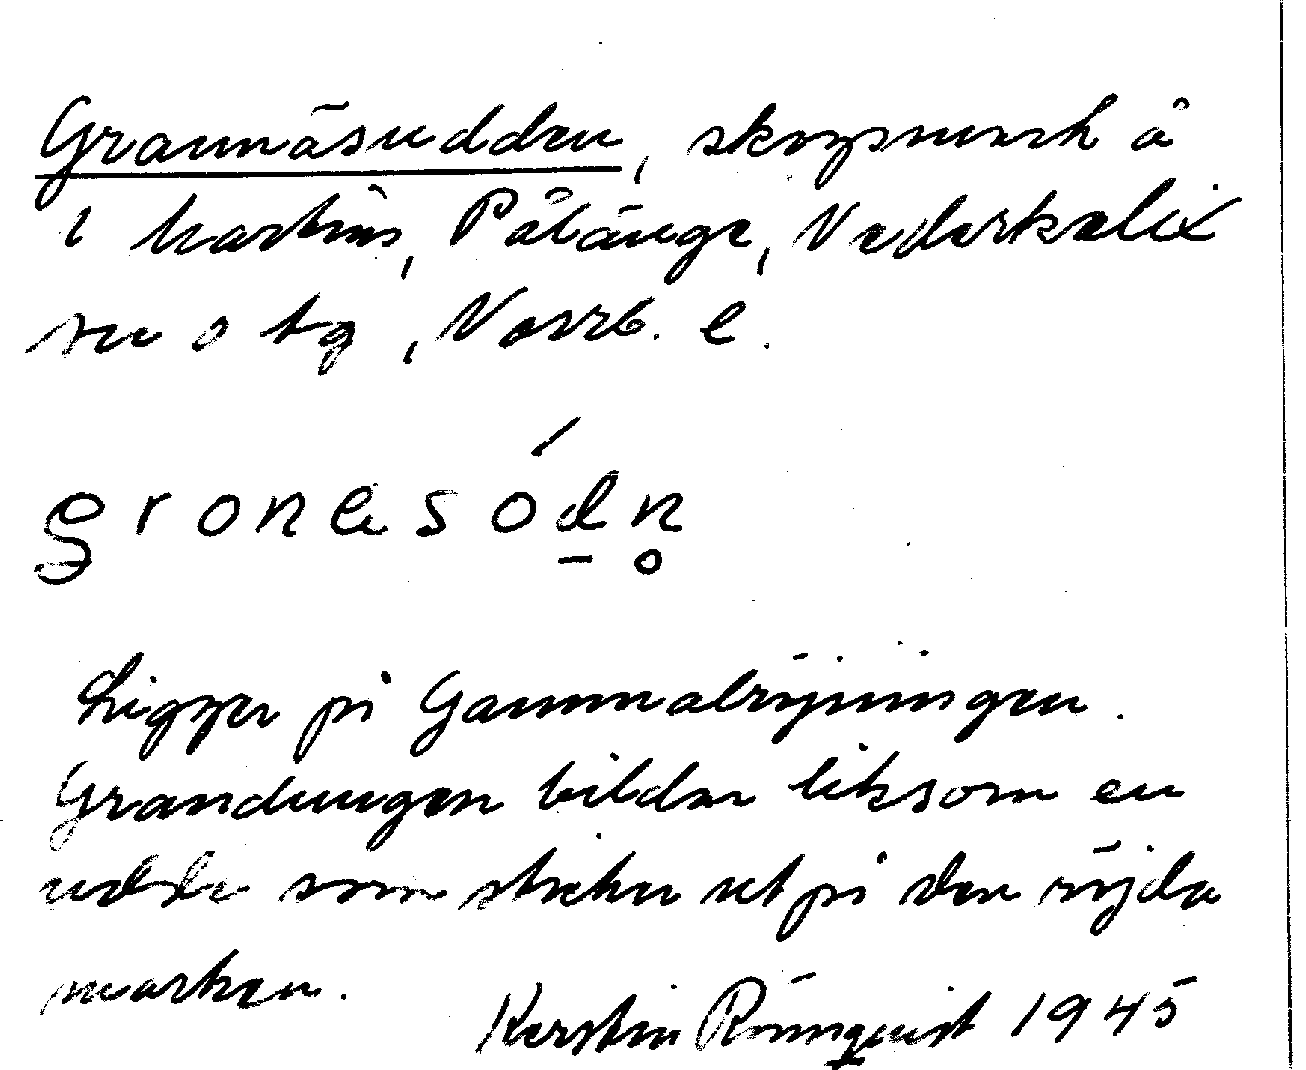 Grannäsudden, skogsmark å
i kartan, Pålänge, Nederkalix
sn o tg, Norrb. l.
gronesódn
Ligger på Gammalröjningen.
Grandungen bildar liksom en
udde som sticker ut på den röjda
marken.
Kerstin Rönnquist 1945